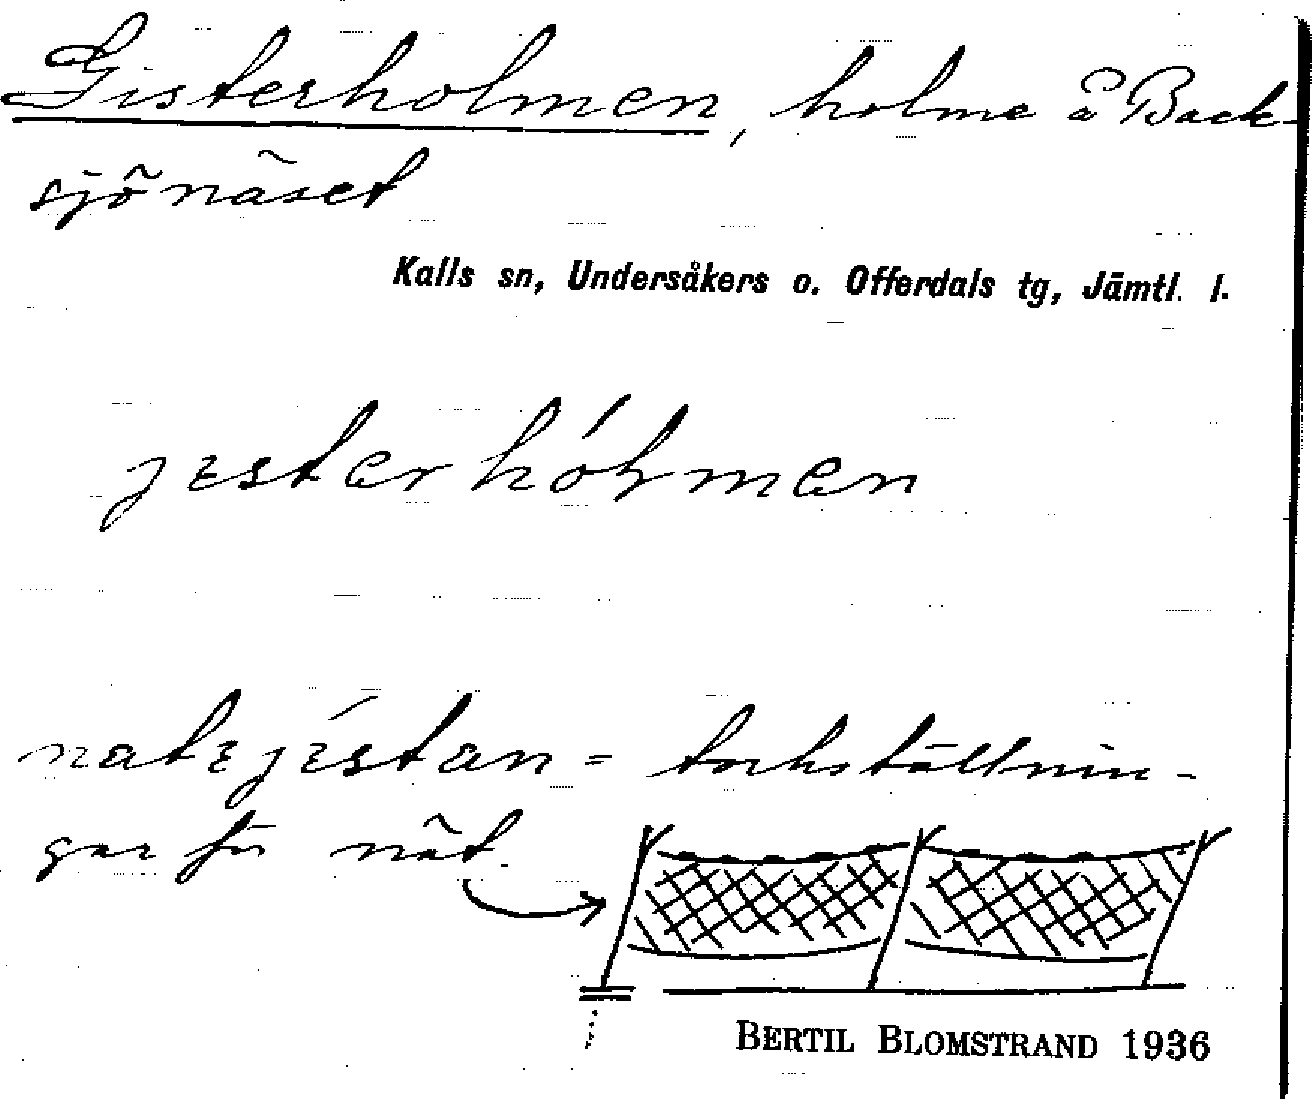 Gisterholmen, holme å Back-
sjönäset
Kalls sn, Undersåkers o. Offerdals tg, Jämtl. l.
jɪsterhólmen
= torkställnin-
gar för nät.
BERTIL BLOMSTRAND 1936